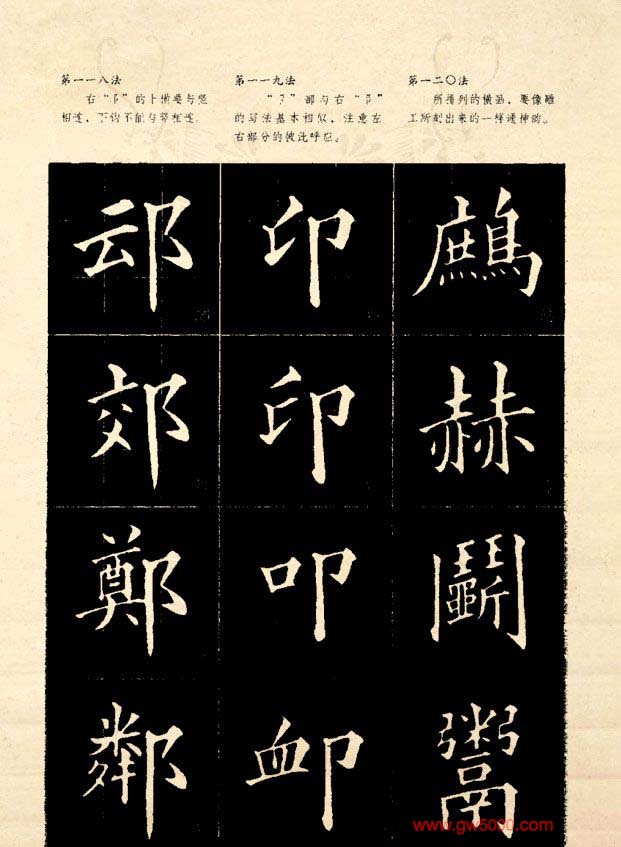 第一一八法
右“阝”的上横要与竖
相连，下钩不能与竖相连。
第一一九法
“卩”部与右“阝”
的写法基本相似，注意左
右部分的彼此呼应。
第一二〇法
所排列的横画，要像雕
工所刻出来的一样通神韵。
䢵 印 鷓
郊 印 赫
鄭 叩 鬭
鄰 卹 鬻
www.gw5000.com